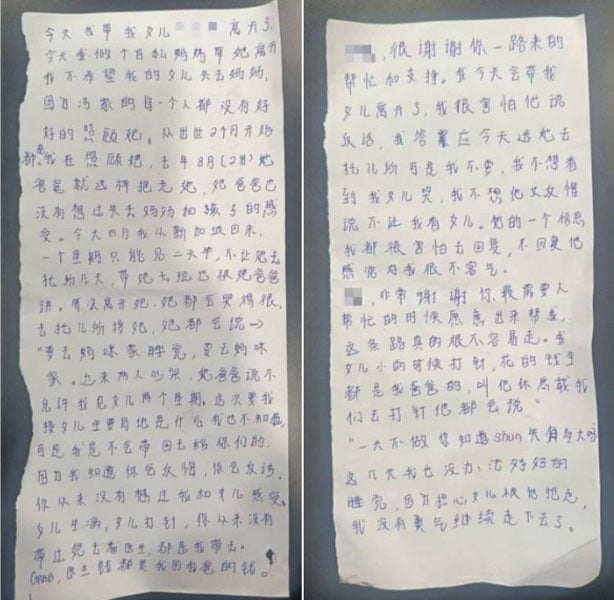 今天我带我女儿 离开了.
今天我做个自私妈妈带她离开
我不希望我的女儿失去妈妈,
因为冯家的每一个人都没有好
好的照顾她。从出世2个月开始
都是我在照顾她,去年8月(2岁)她
爸爸就这样把走她,她爸爸也
没有想过失去妈妈和孩子的感
受。今天四月我从新加坡回来.
一个星期只能见二天半,不让她去
托所几天,带她去玩也被她爸爸
讲。每次离开她,她都会哭得很,
去托儿所接她,她都会说→
"要去妈咪家睡觉,要去妈咪
家。近来两人吵架,她爸爸说不
允许我见女儿两个星期。这次要我
接女儿主要目地是什么我也不知道,
可是我是不会带回去给你们的.
因为我知道你会反悔,你会反话.
你从来没有想过我和女儿感受.
女儿生病,女儿打针,你从来没有
带过她去看医生,都是我带去.
GRAB,医生钱都是我用我爸的钱。
,很谢谢你一路来的
帮忙和支持。我今天会带我
女儿离开了,我很害怕他说
反话,我答应今天送她去
托儿所可是我不要,我不想看
到我女儿哭,我不想他又反悔
说不让我有女儿。他的一个信息
我都很害怕去回复,不回复他
感觉对我很不客气。
,非常谢谢你.最需要人
帮忙的时候愿意出来帮我,
这条路真的很不容易走。我
女儿小的时候打针,花的钱全
都是我爸爸的,叫他休息载我
们去打针他都会说"
"一天不做你知道shun失有多大吗
这几天我也没办法好好的
睡觉,因为担心女儿被他把走,
我没有勇气继续走下去了。